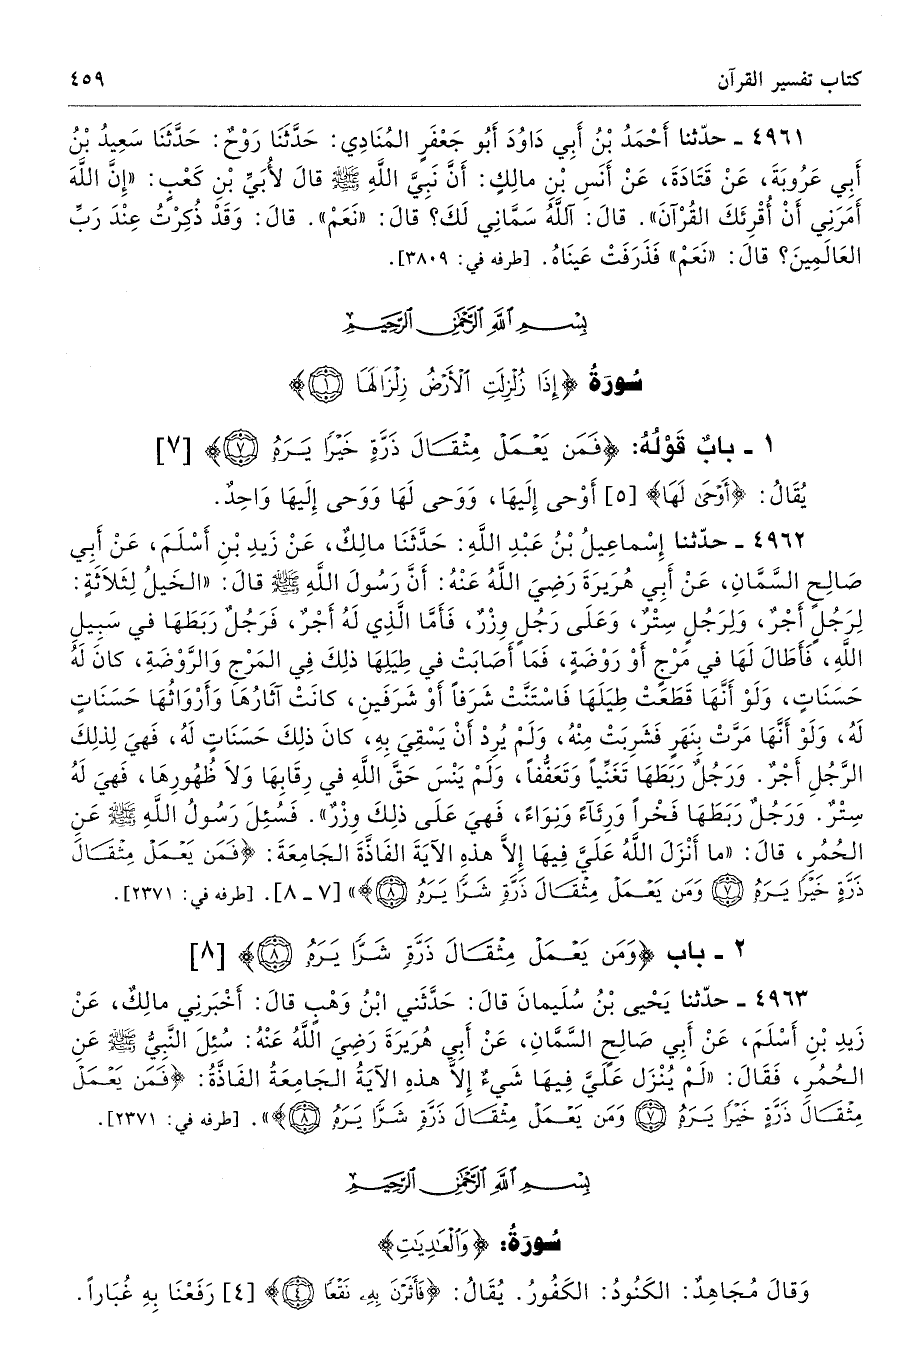 كتاب تفسير القرآن ٤٥٩
٤٩٦١ ـ حدّثنا أَحْمَدُ بْنُ أَبِي دَاوُدَ أَبُو جَعْفَرٍ المُنَادِي: حَدَّثَنَا رَوْحٌ: حَدَّثَنَا سَعِيدُ بْنُ
أَبِي عَرُوبَةَ، عَنْ قَتَادَةَ، عَنْ أَنَسِ بْنِ مالِكٍ: أَنَّ نَبِيَّ اللَّهِ ﷺ قالَ لأُبَيِّ بْنِ كَعْبٍ: «إِنَّ اللَّهَ
أَمَرَنِي أَنْ أُقْرِئَكَ القُرْآنَ». قالَ: آللَّهُ سَمَّانِي لَكَ؟ قالَ: «نَعَمْ». قالَ: وَقَدْ ذُكِرْتُ عِنْدَ رَبِّ
العَالَمِينَ؟ قالَ: «نَعَمْ» فَذَرَفَتْ عَيناهُ. [طرفه في: ٣٨٠٩].
بِسْمِ اللَّهِ الرَّحْمَٰنِ الرَّحِيمِ
سُورَةُ ﴿إِذَا زُلْزِلَتِ الْأَرْضُ زِلْزَالَهَا ۝١﴾
١ ـ بابٌ قَوْلُهُ: ﴿فَمَن يَعْمَلْ مِثْقَالَ ذَرَّةٍ خَيْرًا يَرَهُ ۝٧﴾ [٧]
يُقَالُ: ﴿أَوْحَىٰ لَهَا﴾ [٥] أَوْحى إِلَيهَا، وَوَحى لَهَا وَوَحى إِلَيهَا وَاحِدٌ.
٤٩٦٢ ـ حدّثنا إِسْماعِيلُ بْنُ عَبْدِ اللَّهِ: حَدَّثَنَا مالِكٌ، عَنْ زَيدِ بْنِ أَسْلَمَ، عَنْ أَبِي
صَالِحٍ السَّمَّانِ، عَنْ أَبِي هُرَيرَةَ رَضِيَ اللَّهُ عَنْهُ: أَنَّ رَسُولَ اللَّهِ ﷺ قالَ: «الخَيلُ لِثَلاَثَةٍ:
لِرَجُلٍ أَجْرٌ، وَلِرَجُلٍ سِتْرٌ، وَعَلَى رَجُلٍ وِزْرٌ، فَأَمَّا الَّذِي لَهُ أَجْرٌ، فَرَجُلٌ رَبَطَهَا في سَبِيلِ
اللَّهِ، فَأَطَالَ لَهَا في مَرْجٍ أَوْ رَوْضَةٍ، فَمَا أَصَابَتْ في طِيَلِهَا ذلِكَ فِي المَرْجِ وَالرَّوْضَةِ، كانَ لَهُ
حَسَنَاتٍ، وَلَوْ أَنَّهَا قَطَعَتْ طِيَلَهَا فَاسْتَنَّتْ شَرَفاً أَوْ شَرَفَينِ، كانَتْ آثَارُهَا وَأَرْوَاثُهَا حَسَنَاتٍ
لَهُ، وَلَوْ أَنَّهَا مَرَّتْ بِنَهَرٍ فَشَرِبَتْ مِنْهُ، وَلَمْ يُرِدْ أَنْ يَسْقِيَ بِهِ، كانَ ذلِكَ حَسَنَاتٍ لَهُ، فَهيَ لِذلِكَ
الرَّجُلِ أَجْرٌ. وَرَجُلٌ رَبَطَهَا تَغَنِّياً وَتَعَفُّفاً، وَلَمْ يَنْسَ حَقَّ اللَّهِ في رِقابِهَا وَلاَ ظُهُورِهَا، فَهيَ لَهُ
سِتْرٌ. وَرَجُلٌ رَبَطَهَا فَخْراً وَرِئَاءً وَنِوَاءً، فَهيَ عَلَى ذلِكَ وِزْرٌ». فَسُئِلَ رَسُولُ اللَّهِ ﷺ عَنِ
الحُمُرِ، قالَ: «ما أَنْزَلَ اللَّهُ عَلَيَّ فِيهَا إِلاَّ هذهِ الآيَةَ الفَاذَّةَ الجَامِعَةَ: ﴿فَمَن يَعْمَلْ مِثْقَالَ
ذَرَّةٍ خَيْرًا يَرَهُ ۝٧ وَمَن يَعْمَلْ مِثْقَالَ ذَرَّةٍ شَرًّا يَرَهُ ۝٨﴾» [٧ ـ ٨]. [طرفه في: ٢٣٧١].
٢ ـ باب ﴿وَمَن يَعْمَلْ مِثْقَالَ ذَرَّةٍ شَرًّا يَرَهُ ۝٨﴾ [٨]
٤٩٦٣ ـ حدّثنا يَحْيى بْنُ سُلَيمانَ قالَ: حَدَّثَني ابْنُ وَهْبٍ قالَ: أَخْبَرَنِي مالِكٌ، عَنْ
زَيدِ بْنِ أَسْلَمَ، عَنْ أَبِي صَالِحٍ السَّمَّانِ، عَنْ أَبِي هُرَيرَةَ رَضِيَ اللَّهُ عَنْهُ: سُئِلَ النَّبِيُّ ﷺ عَنِ
الحُمُرِ، فَقَالَ: «لَمْ يُنْزَل عَلَيَّ فِيهَا شَيءٌ إِلاَّ هذهِ الآيَةُ الجَامِعَةُ الفَاذَّةُ: ﴿فَمَن يَعْمَلْ
مِثْقَالَ ذَرَّةٍ خَيْرًا يَرَهُ ۝٧ وَمَن يَعْمَلْ مِثْقَالَ ذَرَّةٍ شَرًّا يَرَهُ ۝٨﴾». [طرفه في: ٢٣٧١].
بِسْمِ اللَّهِ الرَّحْمَٰنِ الرَّحِيمِ
سُورَةُ: ﴿وَالْعَادِيَاتِ﴾
وَقالَ مُجَاهِدٌ: الكَنُودُ: الكَفُورُ. يُقَالُ: ﴿فَأَثَرْنَ بِهِ نَقْعًا ۝٤﴾ [٤] رَفَعْنَا بِهِ غُبَاراً.